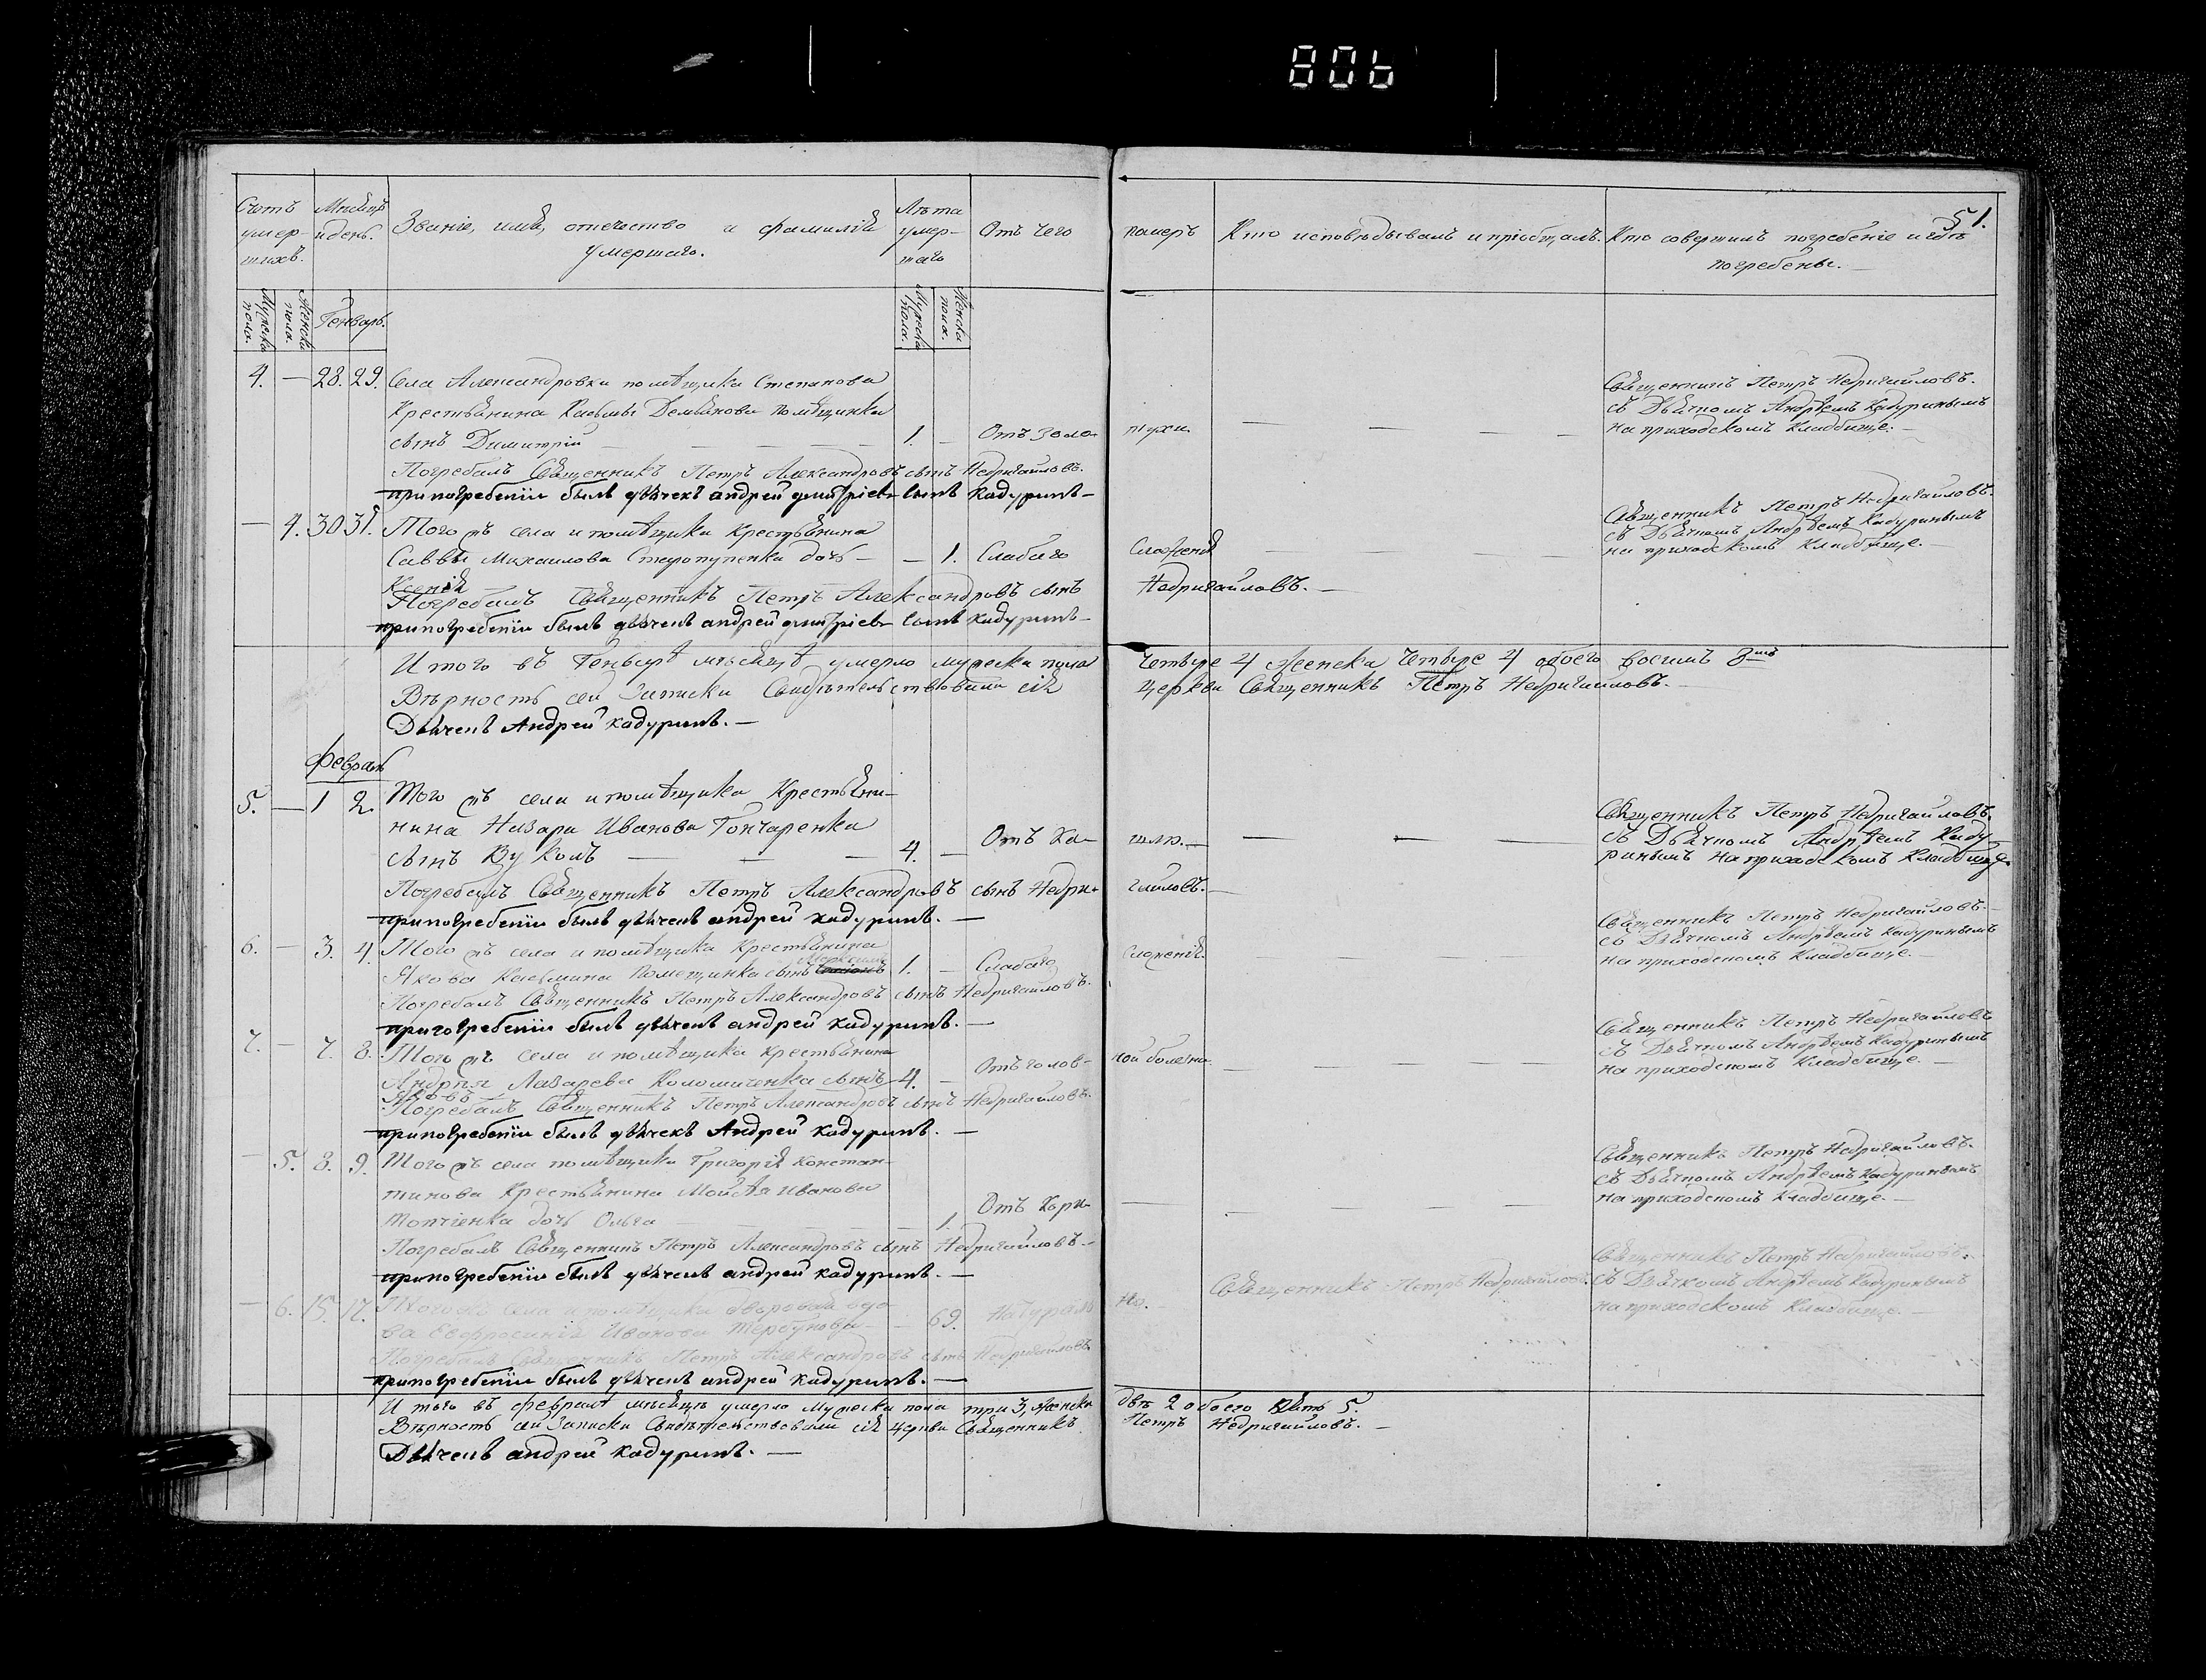 806
51.
Счетъ умер-шихъ. Мѣсяцъ и день. Званіе, имя, отечество и фамилія умершаго. Лѣта умер-шаго Отъ чего померъ Кто исповѣдывалъ и пріобщалъ. Кто совершилъ погребеніе и гдѣ погребены.
Мужеска пола. Женска пола. Генварь. Мужеска пола. Женска пола.
4. — 28. 29. Села Александровки помѣщика Степанова
Крестьянина Козьмы Демьянова помѣщинка
сынъ Димитрій — — — 1. — Отъ золо-тухи. — — — —
Священникъ Петръ Недригайловъ.
съ Дьячкомъ Андрѣемъ Кадуринымъ
на приходскомъ Кладбище. —
Погребалъ Священникъ Петръ Александровъ сынъ Недригайловъ.
при погребеніи былъ дьячекъ андрей дмитріевъ сынъ кадуринъ —
— 4. 30 31. Того жъ села и помѣщика Крестьянина
Саввы Михаилова дочь — — 1. Слабаго Сложенія — — —
Ксенія
Священникъ Петръ Недригайловъ.
съ Дьячкомъ Андрѣемъ Кадуринымъ
на приходскомъ Кладбище. —
Погребалъ Священникъ Петръ Александровъ сынъ Недригайловъ. —
при погребеніи былъ дьячекъ андрей дмитріевъ сынъ кадуринъ —
Итого въ Генварѣ мѣсяцѣ умерло мужеска пола четыре 4 женска четыре 4 обоего восимъ 8мъ
Вѣрность сей Записки Свидѣтельствовали сія церкви Священникъ Петръ Недригайловъ. —
Дьячекъ Андрей кадуринъ. —
Февраль
5. — 1 2. Того жъ села и помѣщика Крестьяни-
нина Назара Иванова Гончаренка
сынъ Вуколъ — — — 4. — Отъ Ка-шлю. — — — —
Священникъ Петръ Недригайловъ.
съ Дьячкомъ Андрѣемъ Каду-
ринымъ на приходскомъ Кладбище.
Погребалъ Священникъ Петръ Александровъ сынъ Недри-гайловъ. —
при погребеніи былъ дьячекъ андрей кадуринъ. —
6. — 3. 4. Того жъ села и помѣщика Крестьянина
Якова Козьмина Помещинка сынъ 1. — Слабаго Сложенія.
Священникъ Петръ Недригайловъ. —
съ Дьячкомъ Андрѣемъ Кадуринымъ
на приходскомъ Кладбище. —
Погребалъ Священникъ Петръ Александровъ сынъ Недригайловъ.
при погребеніи былъ дьячекъ андрей кадуринъ. —
7. — 7. 8. Того жъ села и помѣщика Крестьянина
Андрѣя Лазарева Коломиченка сынъ 4. — Отъ голов-ной болезни. — — — —
Яковъ
Священникъ Петръ Недригайловъ
съ Дьячкомъ Андрѣемъ Кадуринымъ
на приходскомъ Кладбище. —
Погребалъ Священникъ Петръ Александровъ сынъ Недригайловъ.
при погребеніи былъ дьячекъ Андрей кадуринъ. —
— 5. 8. 9. Того жъ села помѣщика Григорія Констан-
тинова Крестьянина Мойсѣя Иванова
Топчіенка дочь Ольга — — 1. Отъ Кори — — — — —
Священникъ Петръ Недригайловъ.
съ Дьячкомъ Андрѣемъ Кадуринымъ
на приходскомъ Кладбище. —
Погребалъ Священникъ Петръ Александровъ сынъ Недригайловъ. —
при погребеніи былъ дьячекъ андрей кадуринъ. —
— 6. 15. 17. Того жъ села и помѣщика дворовая вдо-
ва Евфросинія Иванова — — 69. Натураль-но. Священникъ Петръ Недригайловъ.
Священникъ Петръ Недригайловъ.
съ Дьячкомъ Андрѣемъ Кадуринымъ
на приходскомъ Кладбище. —
Погребалъ Священникъ Петръ Александровъ сынъ Недригайловъ
при погребеніи былъ дьячекъ андрей кадуринъ. —
Итого въ февралѣ мѣсяцѣ умерло Мужеска пола три 3, женска двѣ 2 обоего пять 5.
Вѣрность сей Записки Свидѣтельствовали сія церкви Священникъ Петръ Недригайловъ. —
Дьячекъ андрей кадуринъ. —